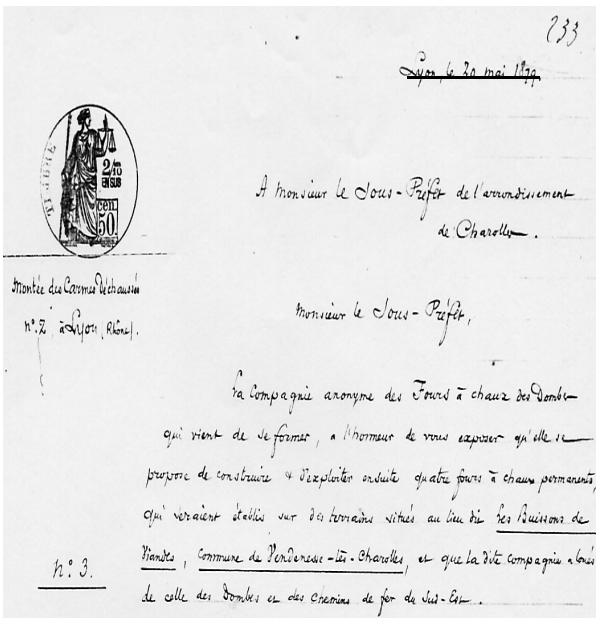 233
Lyon, le 20 mai 1879
TIMBRE
2/10
EN SUS
CEN.
50.
A Monsieur le Sous-Préfet de l'arrondissement
de Charolles.
Montée des Carmes Déchaussés
n°. 2, à Lyon (Rhône).
Monsieur le Sous-Préfet,
La Compagnie anonyme des Fours à chaux des Dombes
qui vient de se former, a l'honneur de vous exposer qu'elle se
propose de construire & d'exploiter ensuite quatre fours à chaux permanents,
qui seraient établis sur des terrains situés au lieu dit Les Buissons de
Viandes, Commune de Vendenesse-lès-Charolles, et que la dite compagnie a loués
n°. 3.
de celle des Dombes et des Chemins de fer du Sud-Est.